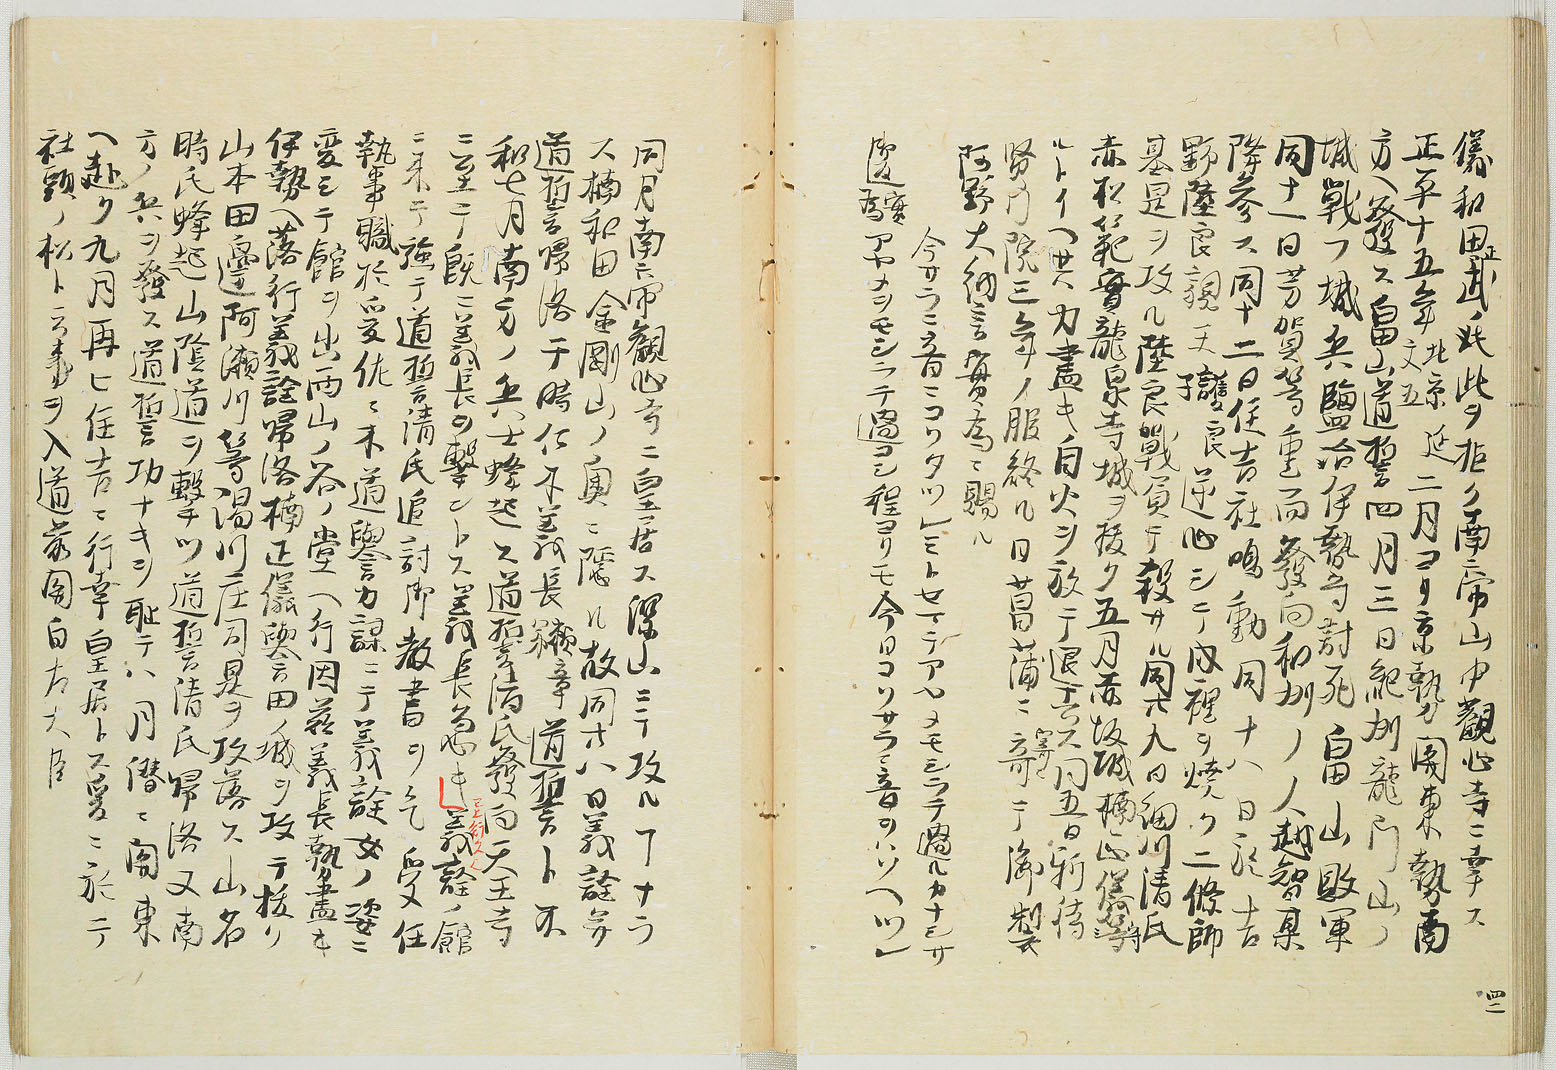 儀和田正武ノ此此ヲ拒ク南帝山中觀心寺ニ幸ス
正平十五年北京延文五二月ヨリ京勢ヒ関東勢南
方ヘ發ス畠山道誓四月三日紀州龍門山ノ
城戰フ城兵鹽冶伊勢守討死畠山敗軍
同十一日芳賀等重而發向和州ノ人越智某
降参ス同十二日住吉社鳴動同十八日於吉
野陸良親王護良子逆心シテ成裡ヲ燒ク二條師
基是ヲ攻ル陸良戰負テ殺サル同廿九日細川清氏
赤松範實龍泉寺城ヲ拔ク五月赤坂城楠正儀等守
ルトイヘ共力盡キ自火ヲ放テ退去ス同五日新待
賢門院三年ノ服終ル日菖蒲ニ寄テ御製
阿野大納言實為ニ賜ル
今サラニ音ニコソタツレミトセマテアヤメモシラテ過ルカナミサ
御返實為アヤメヲモシラテ過コシ程ヨリモ今日コソサラニ音ヲハソヘツレ
同月南帝觀心寺ニ皇居ス深山ニテ攻ルヿナラ
ス楠和田金剛山ノ奥ニ隱ル故同廿八日義詮并
道誓帰洛于時仁木義長頼章道誓ト不
和七月南方ノ兵士蜂起ス道誓清氏發向天王寺
ニ至テ既ニ義長ヲ擊ントス義長怱キ義詮ノ館
ニ来テ強テ道誓清氏追討御教書ヲ乞受任
執事職於爰佐々木道譽力謀ニテ義詮女ノ姿ニ
変シテ館ヲ出西山ノ谷ノ堂ヘ行因茲義長勢盡キ
伊勢ヘ落行義詮帰洛楠正儀譽田ノ城ヲ攻テ拔リ
山本田邊阿瀬川等湯川庄司是ヲ攻落ス山名
時氏蜂起山陰道ヲ擊ツ道誓清氏帰洛又南
方ノ兵ヲ發ス道誓功ナキヲ恥テ八月潜ニ関東
ヘ赴ク九月再ヒ住吉ニ行幸皇居トス爰ニ於テ
社頭ノ松ト云事ヲ入道前関白左大臣
四二